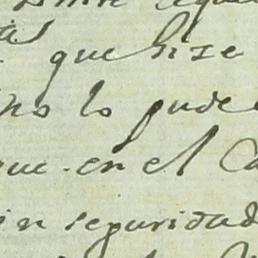 que hise
no lo pude
que en el Ca
in seguridad